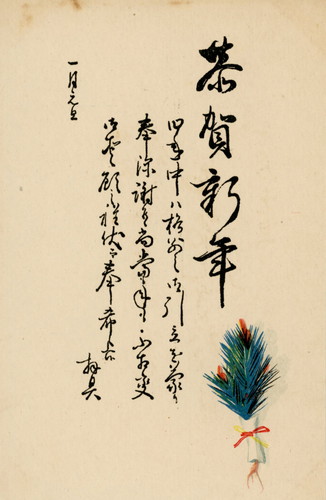 恭賀新年
旧年中ハ格別之御引立を蒙り
奉深謝候尚当年も不相変
御愛顧之程伏而奉希上候
拝具
一月元旦